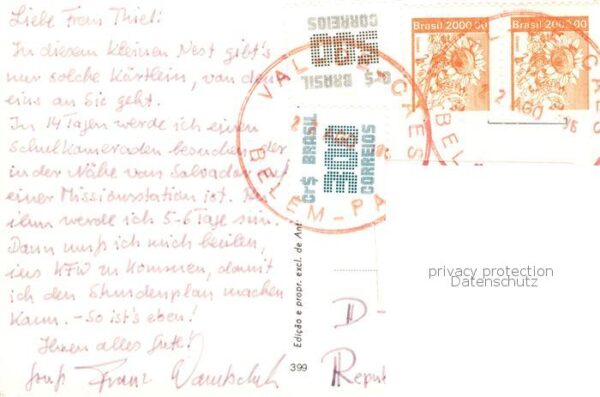 Liebe Frau Thiel!
In diesem kleinen Nest gibt's
nur solche Kärtlein, von denen
eins an Sie geht.
In 14 Tagen werde ich einen
Schulkameraden besuchen, der
in der Nähe von Salvador auf
einer Missionsstation ist. Bei
ihm werde ich 5-6 Tage sein.
Dann muß ich mich beeilen,
ins KFW zu kommen, damit
ich den Stundenplan machen
kann. - So ist's eben!
Ihnen alles Gute!
Gruß Franz
399
Edição e propr. excl. de
500
CORREIOS
BRASIL
Cr$
Cr$ BRASIL
300
CORREIOS
Brasil 2000,00
Brasil 2000,00
BELEM-PA
2 AGO
privacy protection
Datenschutz
D-
Repu